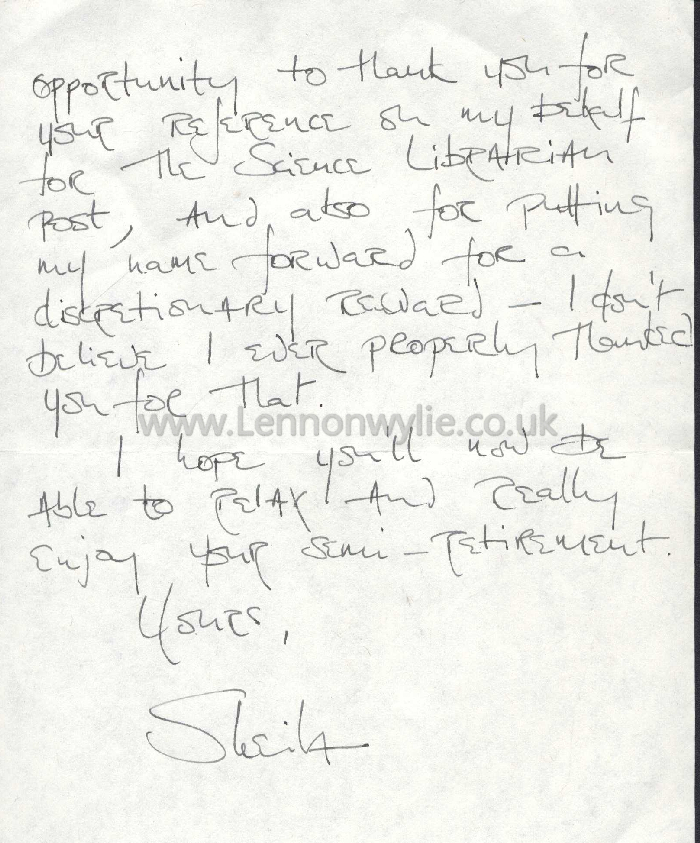 opportunity to thank you for
your reference on my behalf
for the Science Librarian
post, and also for putting
my name forward for a
discretionary reward – I don't
believe I ever properly thanked
you for that.
www.Lennonwylie.co.uk
I hope you'll now be
able to relax and really
enjoy your semi-retirement.
Yours,
Sheila